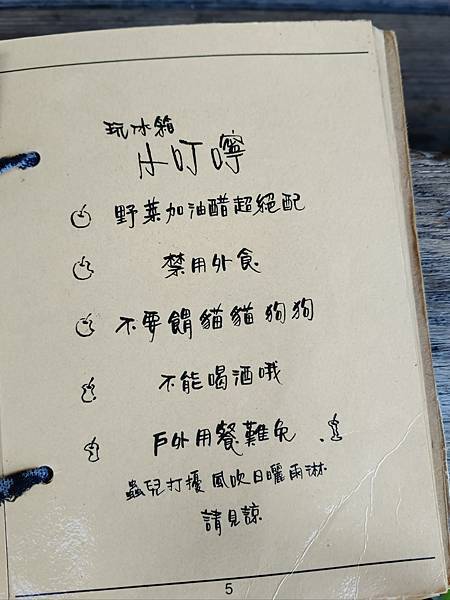 玩冰箱
小叮嚀
野菜加油醋超絕配
禁用外食
不要餵貓貓狗狗
不能喝酒哦
戶外用餐難免
蟲兒打擾風吹日曬雨淋
請見諒
5